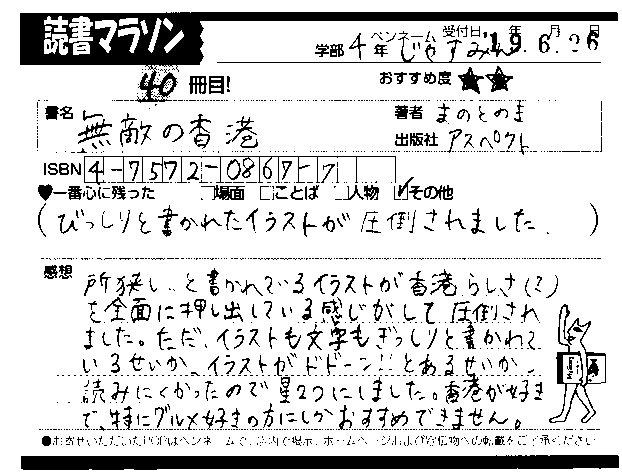 読書マラソン
学部 4年 ペンネーム じゃすみん 受付日 '19年 6月 26日
40 冊目! おすすめ度 ★★
書名 無敵の香港 著者 まのとのま
出版社 アスペクト
ISBN 4-7572-0867-7
♥一番心に残った □場面 □ことば □人物 ☑その他
(びっしりと書かれたイラストが圧倒されました。)
感想
所狭しっと書かれているイラストが香港らしさ(?)
を全面に押し出している感じがして圧倒され
ました。ただ、イラストも文字もぎっしりと書かれて
いるせいか、イラストがドドーン!!とあるせいか、
読みにくかったので星2つにしました。香港が好き
で、特にグルメ好きの方にしかおすすめできません。
●お寄せいただいたPOPはペンネームで、店内で掲示、ホームページおよび宣伝物への転載をご了承ください